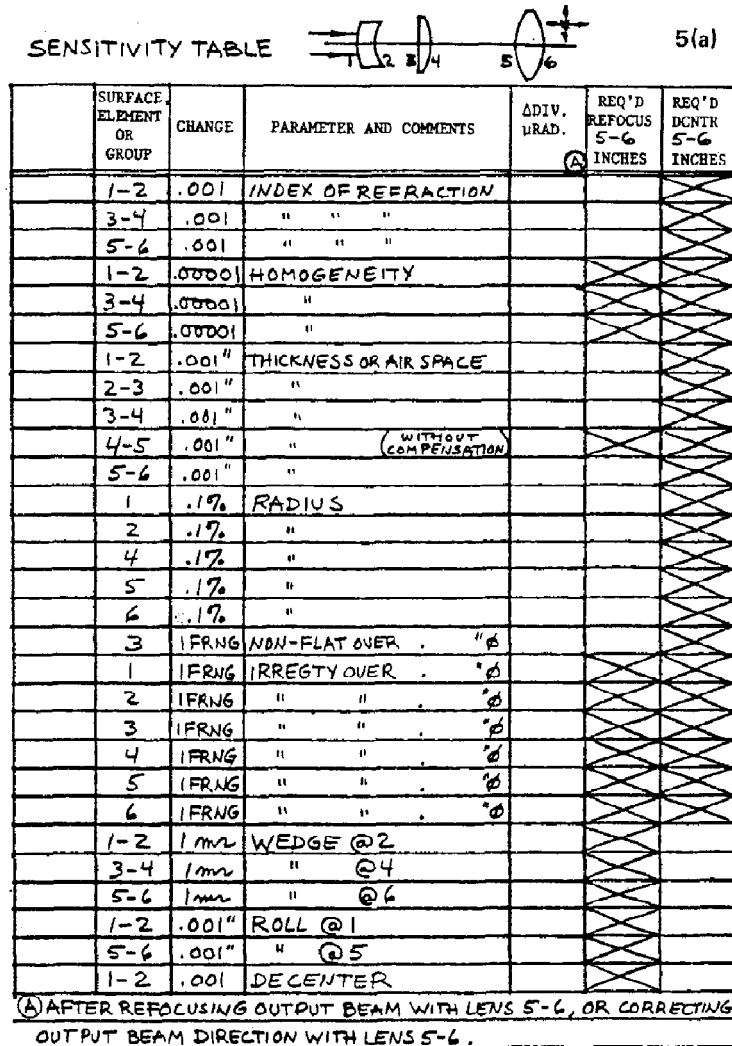 SENSITIVITY TABLE 1 2 3 4 5 6 5(a)
SURFACE, ELEMENT OR GROUP CHANGE PARAMETER AND COMMENTS ΔDIV. μRAD. Ⓐ REQ'D REFOCUS 5-6 INCHES REQ'D DCNTR 5-6 INCHES
1-2 .001 INDEX OF REFRACTION
3-4 .001 " " "
5-6 .001 " " "
1-2 .00001 HOMOGENEITY
3-4 .00001 "
5-6 .00001 "
1-2 .001" THICKNESS OR AIR SPACE
2-3 .001" "
3-4 .001" "
4-5 .001" " (WITHOUT COMPENSATION)
5-6 .001" "
1 .1% RADIUS
2 .1% "
4 .1% "
5 .1% "
6 .1% "
3 1 FRNG NON-FLAT OVER . "ø
1 1 FRNG IRREGTY OVER . "ø
2 1 FRNG " " . "ø
3 1 FRNG " " . "ø
4 1 FRNG " " . "ø
5 1 FRNG " " . "ø
6 1 FRNG " " . "ø
1-2 1 mr WEDGE @ 2
3-4 1 mr " @ 4
5-6 1 mr " @ 6
1-2 .001" ROLL @ 1
5-6 .001" " @ 5
1-2 .001 DECENTER
Ⓐ AFTER REFOCUSING OUTPUT BEAM WITH LENS 5-6, OR CORRECTING
OUTPUT BEAM DIRECTION WITH LENS 5-6.